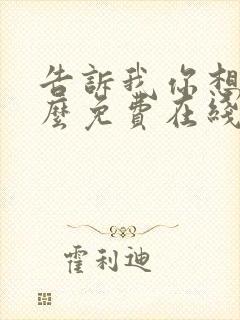 告訴我你想
麼免費在綫
霍利迪